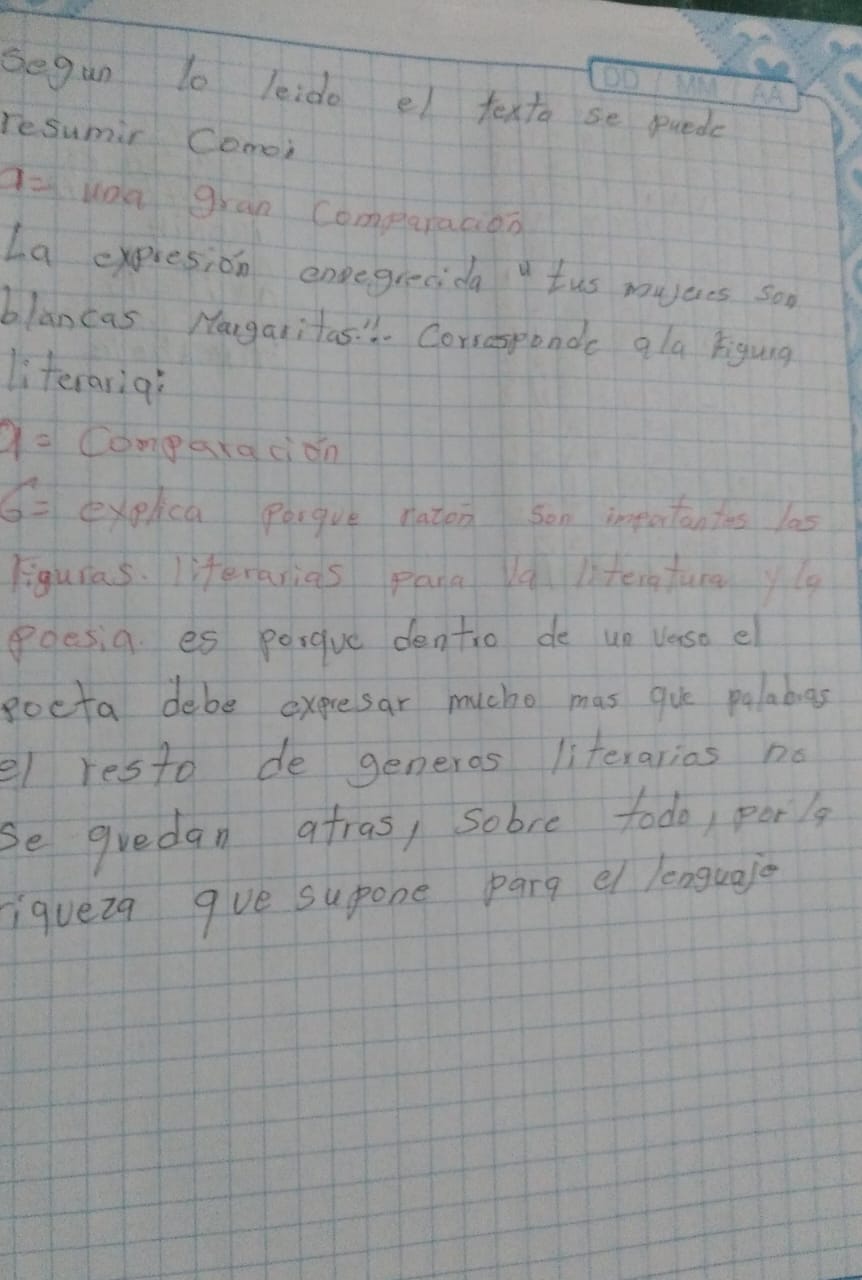 DD / MM / AA
Segun lo leido el texto se puede
resumir Como:
a= una gran Comparación
La expresión ennegrecida "tus mujeres son
blancas Margaritas". Corresponde a la Figura
literaria:
a= Comparación
6= explica porque razon son importantes las
Figuras. literarias para la literatura y la
poesia. es porque dentro de un verso el
poeta debe expresar mucho mas que palabras
el resto de generos literarios no
se quedan atras, sobre todo, por la
riqueza que supone para el lenguaje